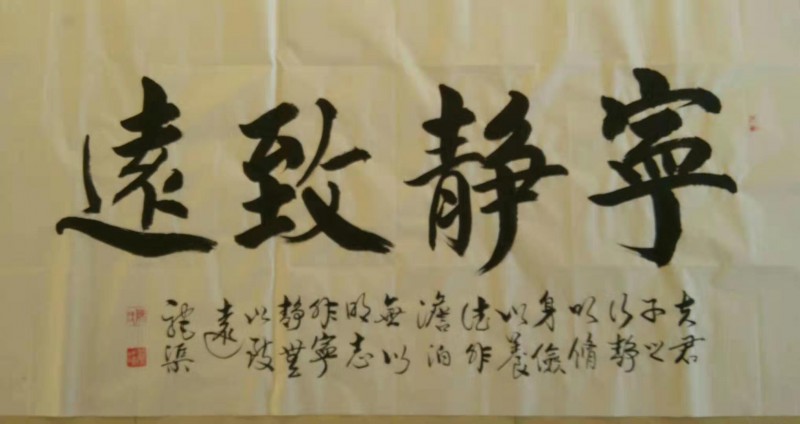 寧靜致遠
夫君
子之
行靜
以脩
身儉
以養
德非
澹泊
無以
明志
非寧
靜無
以致
遠